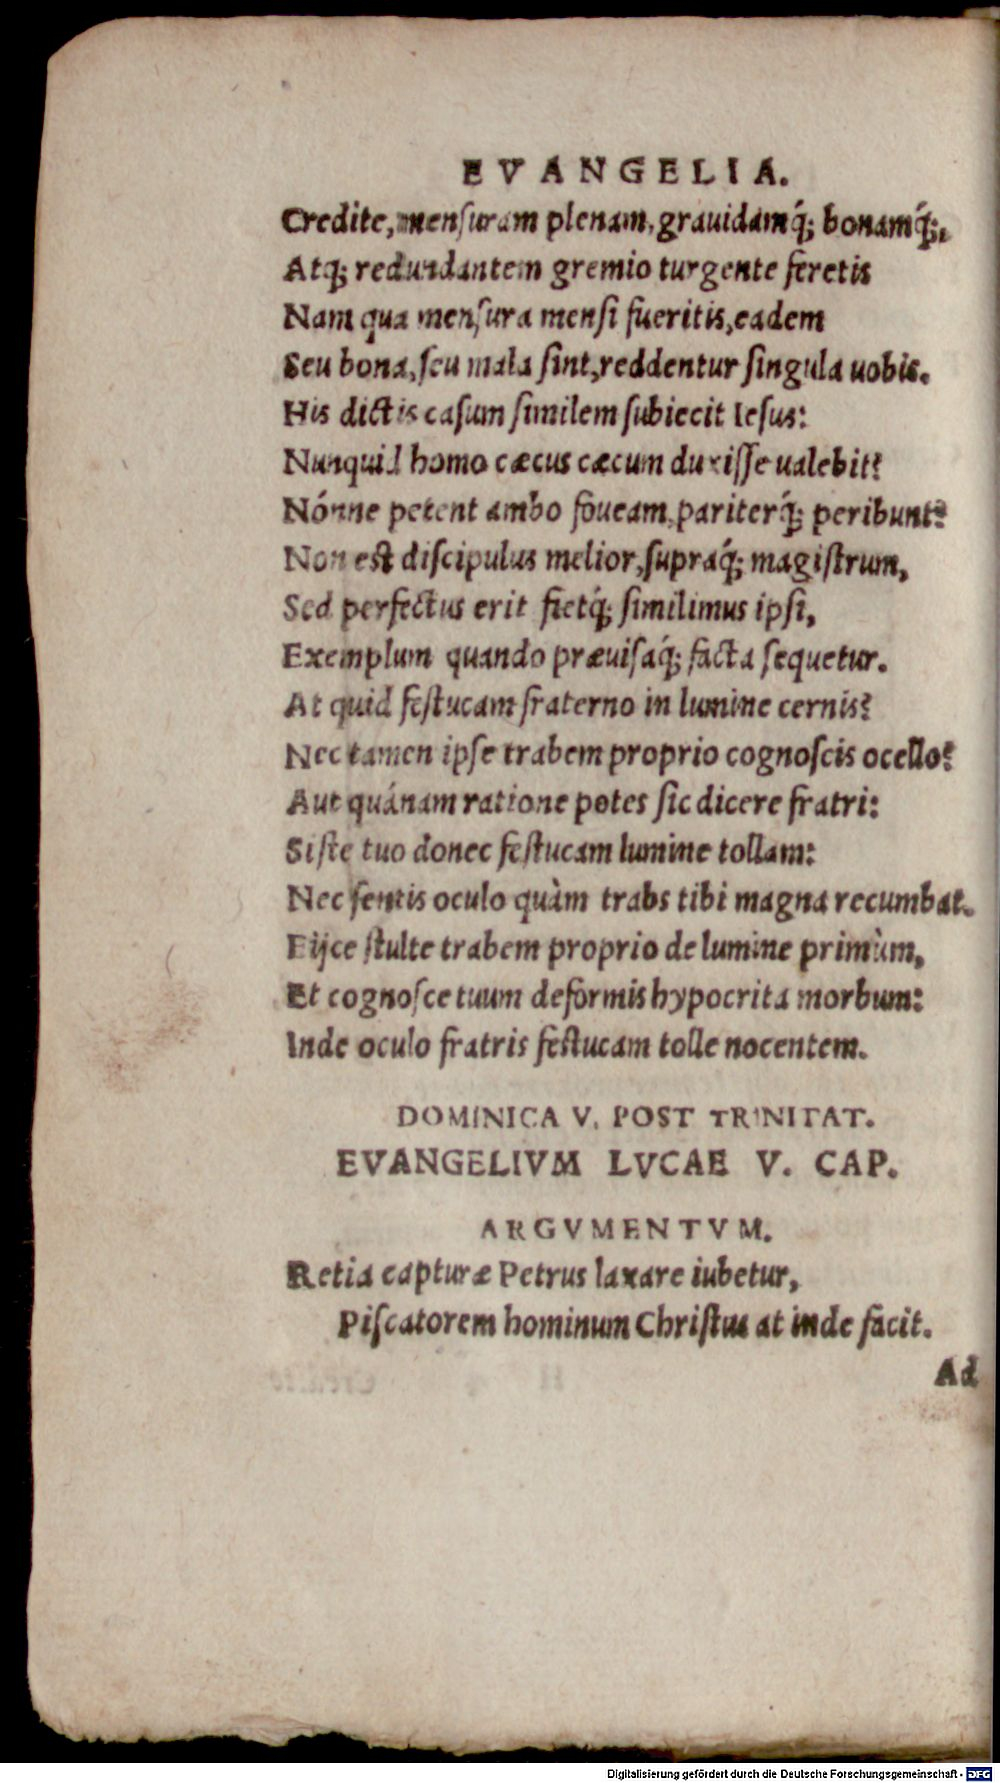 EVANGELIA.
Credite, mensuram plenam, grauidamq́; bonamq́;,
Atq; redundantem gremio turgente feretis
Nam qua mensura mensi fueritis, eadem
Seu bona, seu mala sint, reddentur singula uobis.
His dictis casum similem subiecit Iesus:
Nunquid homo cæcus cæcum duxisse ualebit?
Nónne petent ambo foueam, pariterq́; peribunt?
Non est discipulus melior, supraq́; magistrum,
Sed perfectus erit fietq́; similimus ipsi,
Exemplum quando præuisaq́; facta sequetur.
At quid festucam fraterno in lumine cernis?
Nec tamen ipse trabem proprio cognoscis ocello?
Aut quánam ratione potes sic dicere fratri:
Siste tuo donec festucam lumine tollam:
Nec sentis oculo quàm trabs tibi magna recumbat.
Eijce stulte trabem proprio de lumine primùm,
Et cognosce tuum deformis hypocrita morbum:
Inde oculo fratris festucam tolle nocentem.
DOMINICA V. POST TRINITAT.
EVANGELIVM LVCAE V. CAP.
ARGVMENTVM.
Retia capturæ Petrus laxare iubetur,
Piscatorem hominum Christus at inde facit.
Ad
Digitalisierung gefördert durch die Deutsche Forschungsgemeinschaft - DFG